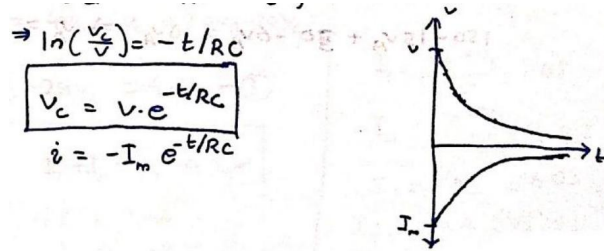 ⇒ ln(Vc/V) = -t/RC
Vc = V·e^-t/RC
i = -Im e^-t/RC
V
V
t
Im